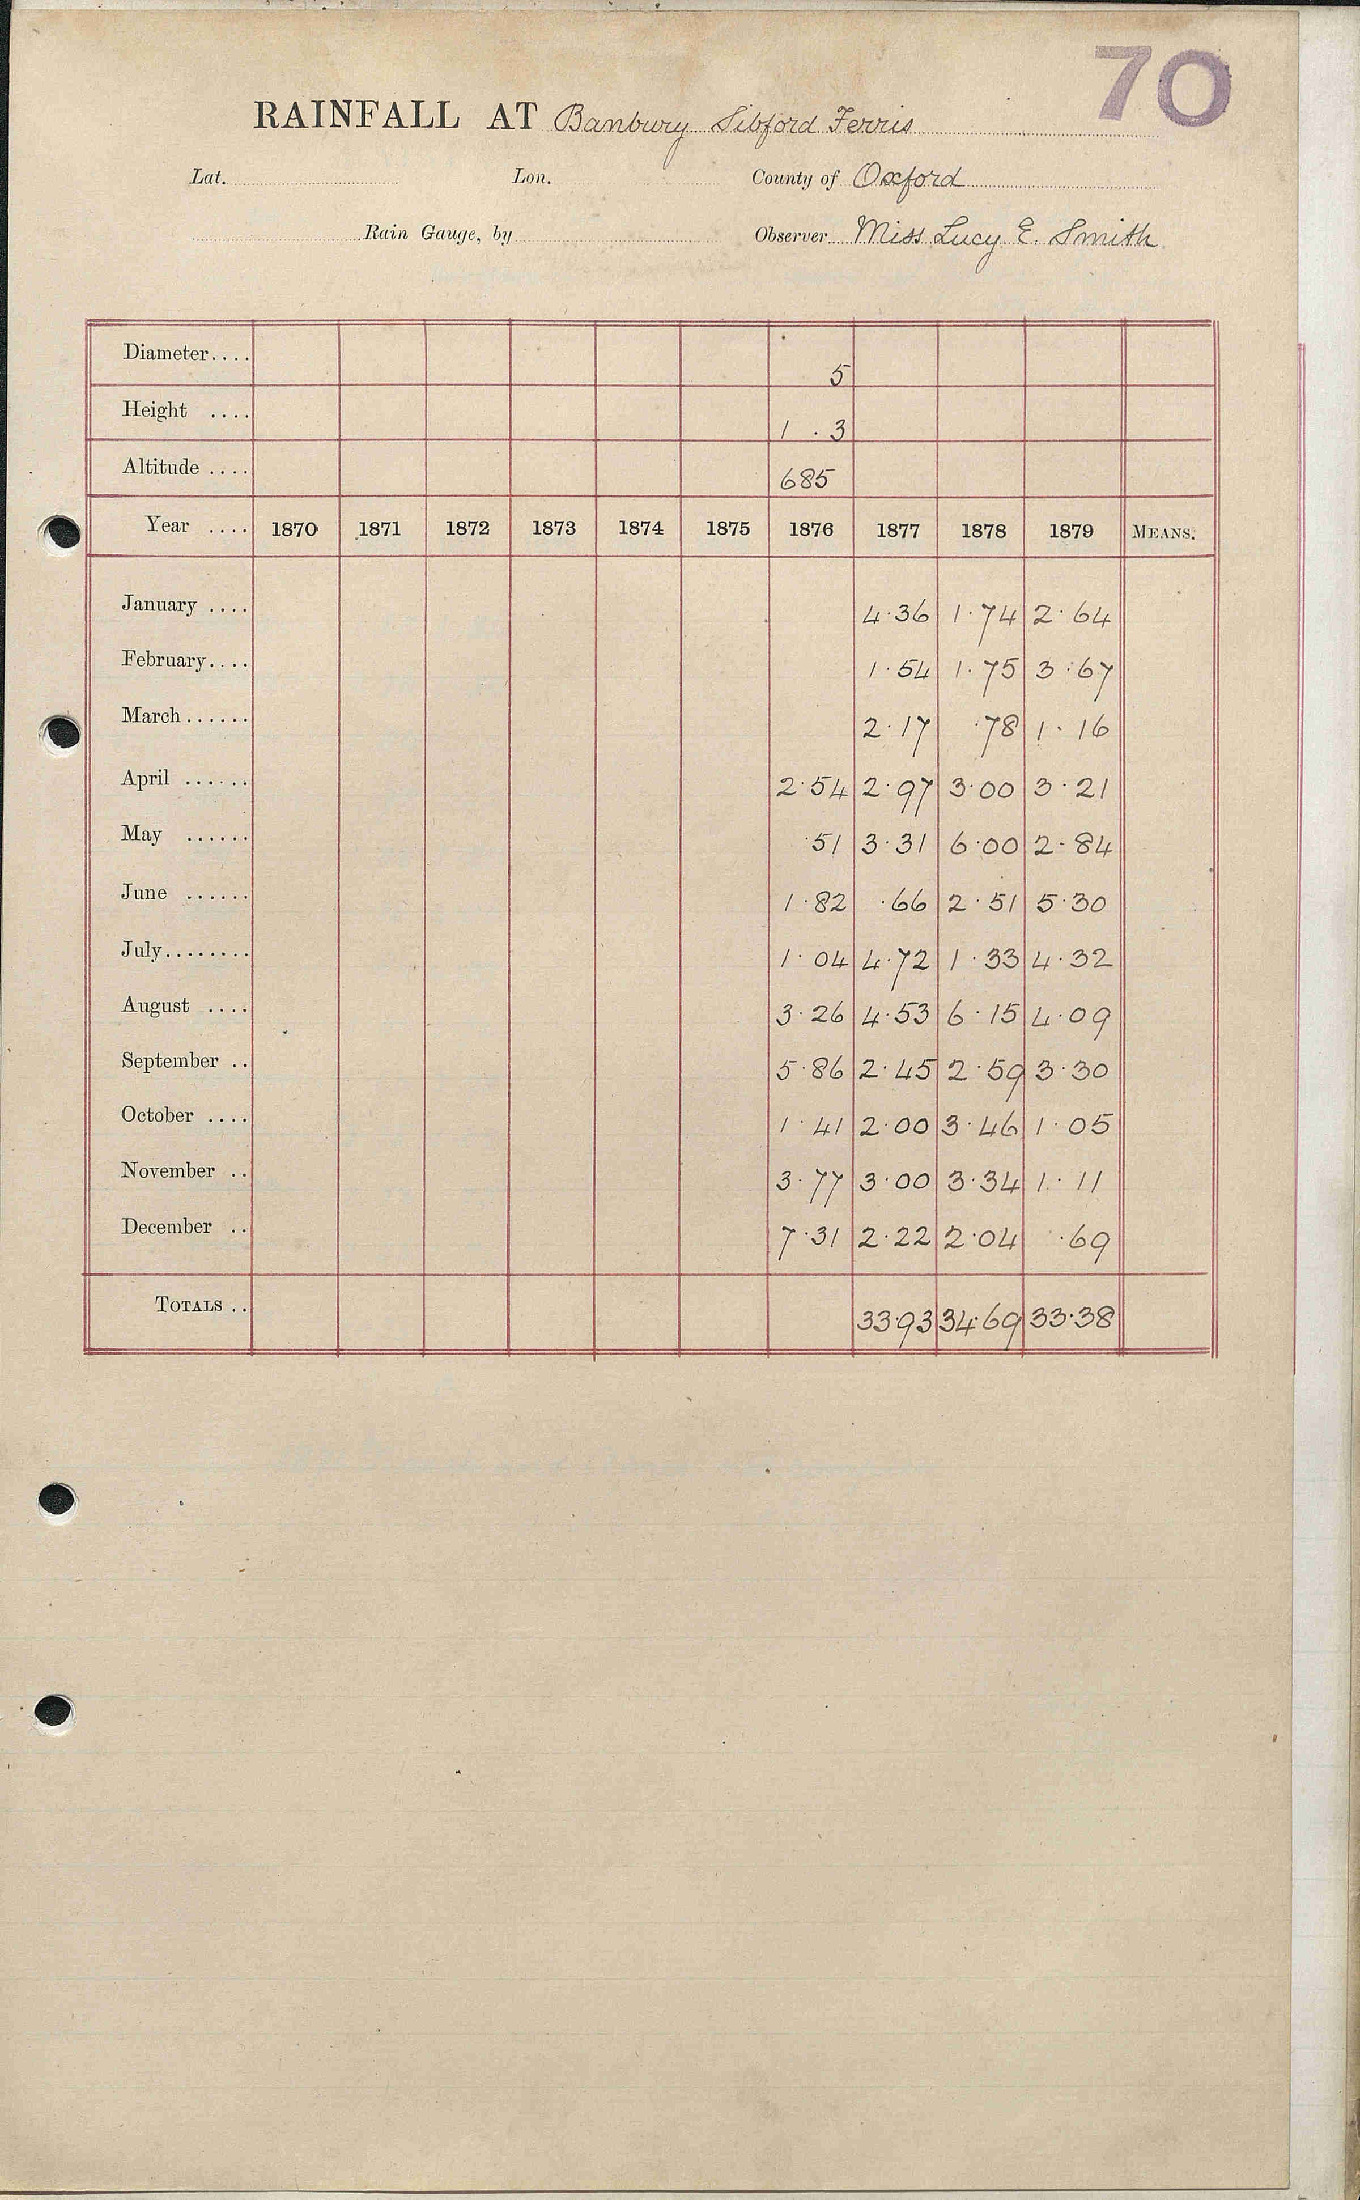 70
RAINFALL AT Banbury Sibford Ferris
Lat. Lon. County of Oxford
Rain Gauge, by Observer Miss Lucy E. Smith
Diameter.... 5
Height .... 1 . 3
Altitude .... 685
Year .... 1870 1871 1872 1873 1874 1875 1876 1877 1878 1879 MEANS.
January .... 4.36 1.74 2.64
February.... 1.54 1.75 3.67
March...... 2.17 .78 1.16
April ...... 2.54 2.97 3.00 3.21
May ...... .51 3.31 6.00 2.84
June ...... 1.82 .66 2.51 5.30
July........ 1.04 4.72 1.33 4.32
August .... 3.26 4.53 6.15 4.09
September .. 5.86 2.45 2.59 3.30
October .... 1.41 2.00 3.46 1.05
November .. 3.77 3.00 3.34 1.11
December .. 7.31 2.22 2.04 .69
TOTALS .. 33.93 34.69 33.38